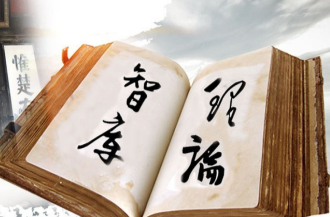 理論
智库
惟楚